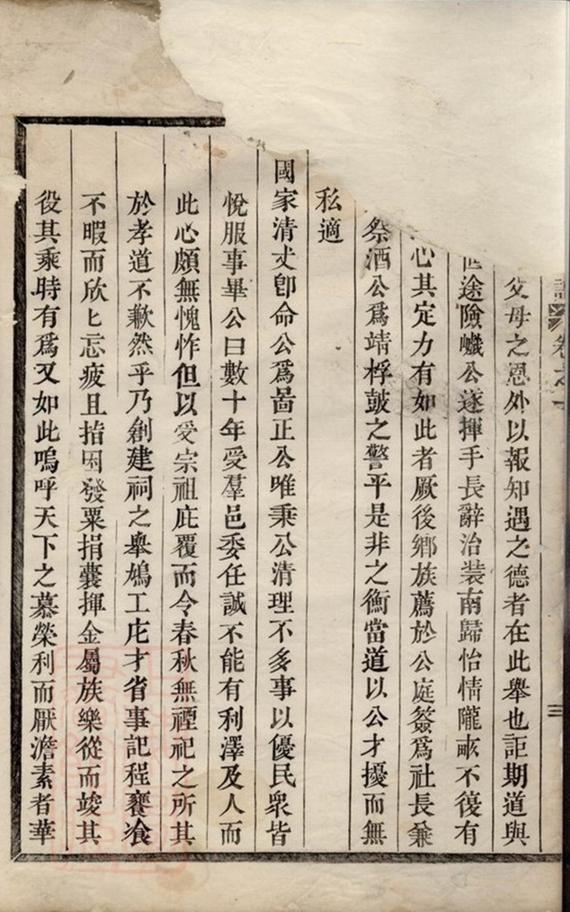 卷之
父母之恩外以報知遇之德者在此舉也詎期道與
途險巇公遂揮手長辭治装南歸怡情隴畝不復有
心其定力有如此者厥後鄉族薦於公庭簽爲社長兼
祭酒公爲靖桴皷之警平是非之衡當道以公才擾而無
私適
國家清丈卽命公爲啚正公唯秉公清理不多事以優民衆皆
悅服事畢公曰數十年受羣邑委任誠不能有利澤及人而
此心頗無愧怍但以受宗祖庇覆而令春秋無禋祀之所其
於孝道不歉然乎乃創建祠之舉鳩工庀才省事記程饔飧
不暇而欣匕忘疲且指囷發粟捐囊揮金屬族樂從而竣其
役其乘時有爲又如此嗚呼天下之慕榮利而厭澹素者華
三